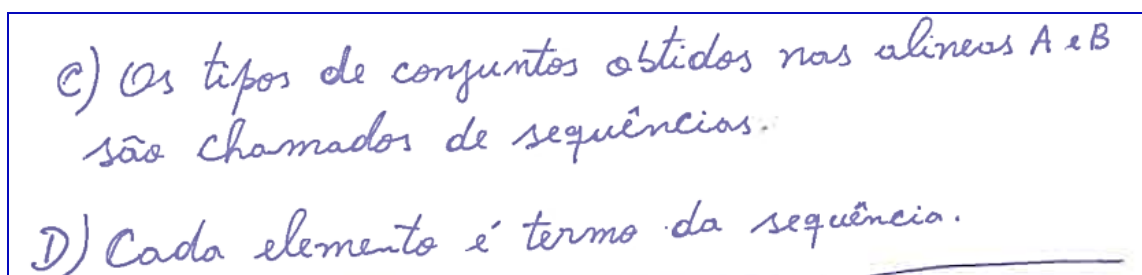 C) Os tipos de conjuntos obtidos nas alineas A e B
são chamados de sequências.
D) Cada elemento é termo da sequência.